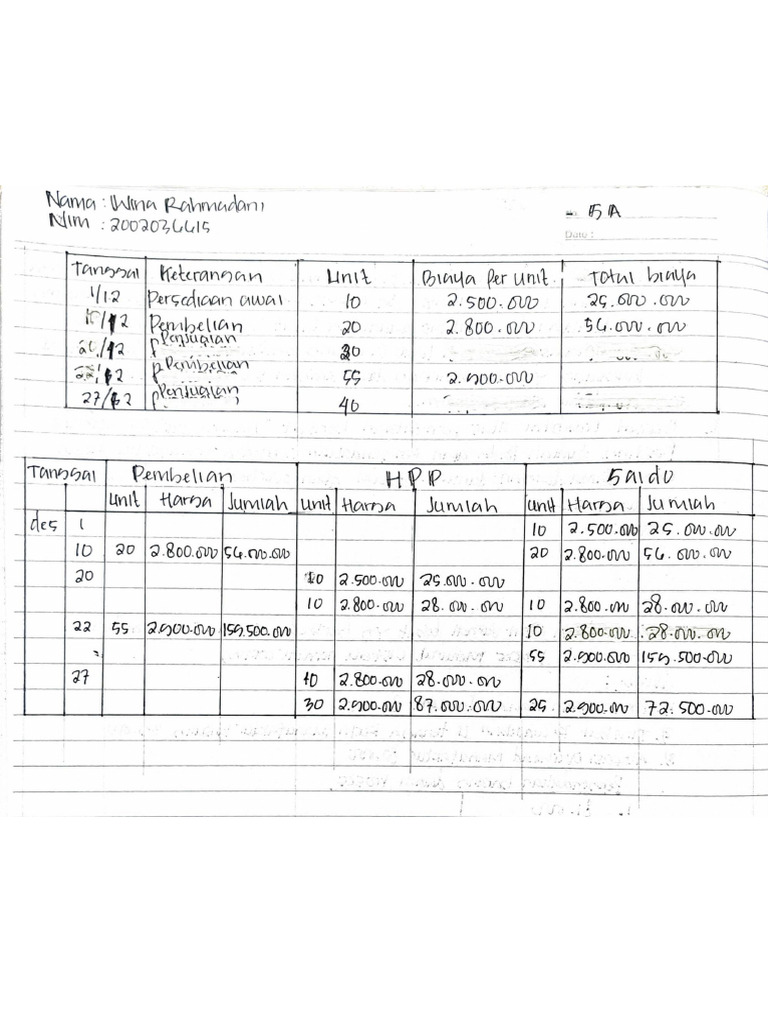 Nama : Wina Rahmadani
Nim : 2002036615
No. 5A
Date :
Tanggal Keterangan Unit Biaya per unit Total biaya
1/12 Persediaan awal 10 2.500.000 25.000.000
10/12 Pembelian 20 2.800.000 56.000.000
20/12 Penjualan 20
22/12 Pembelian 55 2.900.000
27/12 Penjualan 40
Tanggal Pembelian HPP Saldo
Unit Harga Jumlah Unit Harga Jumlah Unit Harga Jumlah
des 1 10 2.500.000 25.000.000
10 20 2.800.000 56.000.000 20 2.800.000 56.000.000
20 10 2.500.000 25.000.000
10 2.800.000 28.000.000 10 2.800.000 28.000.000
22 55 2.900.000 159.500.000 10 2.800.000 28.000.000
55 2.900.000 159.500.000
27 10 2.800.000 28.000.000
30 2.900.000 87.000.000 25 2.900.000 72.500.000